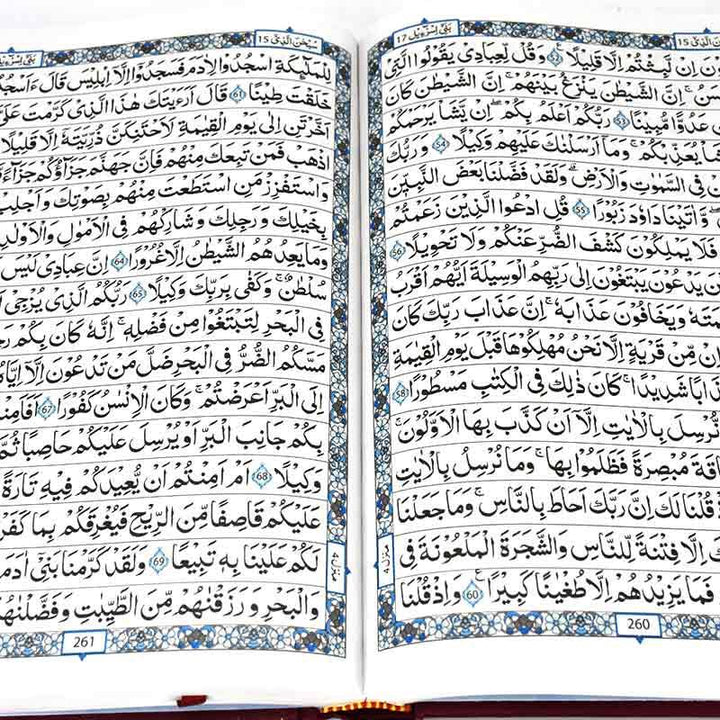 بَنِیْٓ اِسْرَآءِیْل 17
15
اِنْ لَّبِثْتُمْ اِلَّا قَلِیْلًا 52 وَقُلْ لِّعِبَادِیْ یَقُوْلُوا الَّتِیْ
اِنَّ الشَّیْطٰنَ یَنْزَغُ بَیْنَهُمْ اِنَّ الشَّیْطٰنَ كَانَ
عَدُوًّا مُّبِیْنًا 53 رَبُّكُمْ اَعْلَمُ بِكُمْ اِنْ یَّشَاْ یَرْحَمْكُمْ
یُعَذِّبْكُمْ وَمَاۤ اَرْسَلْنٰكَ عَلَیْهِمْ وَكِیْلًا 54 وَرَبُّكَ
فِی السَّمٰوٰتِ وَالْاَرْضِ وَلَقَدْ فَضَّلْنَا بَعْضَ النَّبِیّٖنَ
وَّاٰتَیْنَا دَاوٗدَ زَبُوْرًا 55 قُلِ ادْعُوا الَّذِیْنَ زَعَمْتُمْ
فَلَا یَمْلِكُوْنَ كَشْفَ الضُّرِّ عَنْكُمْ وَلَا تَحْوِیْلًا 56
یَدْعُوْنَ یَبْتَغُوْنَ اِلٰی رَبِّهِمُ الْوَسِیْلَةَ اَیُّهُمْ اَقْرَبُ
وَیَخَافُوْنَ عَذَابَهٗ اِنَّ عَذَابَ رَبِّكَ كَانَ
مِّنْ قَرْیَةٍ اِلَّا نَحْنُ مُهْلِكُوْهَا قَبْلَ یَوْمِ الْقِیٰمَةِ
شَدِیْدًا كَانَ ذٰلِكَ فِی الْكِتٰبِ مَسْطُوْرًا 58
نُّرْسِلَ بِالْاٰیٰتِ اِلَّاۤ اَنْ كَذَّبَ بِهَا الْاَوَّلُوْنَ
مُبْصِرَةً فَظَلَمُوْا بِهَا وَمَا نُرْسِلُ بِالْاٰیٰتِ
قُلْنَا لَكَ اِنَّ رَبَّكَ اَحَاطَ بِالنَّاسِ وَمَا جَعَلْنَا
اِلَّا فِتْنَةً لِّلنَّاسِ وَالشَّجَرَةَ الْمَلْعُوْنَةَ فِی
فَمَا یَزِیْدُهُمْ اِلَّا طُغْیَانًا كَبِیْرًا 60 وَاِذْ قُلْنَا
منزل ٤
260
سُبْحٰنَ الَّذِیْٓ 15
لِلْمَلٰٓىِٕكَةِ اسْجُدُوْا لِاٰدَمَ فَسَجَدُوْۤا اِلَّاۤ اِبْلِیْسَ قَالَ ءَاَسْجُدُ
خَلَقْتَ طِیْنًا 61 قَالَ اَرَءَیْتَكَ هٰذَا الَّذِیْ كَرَّمْتَ عَلَیَّ
اَخَّرْتَنِ اِلٰی یَوْمِ الْقِیٰمَةِ لَاَحْتَنِكَنَّ ذُرِّیَّتَهٗۤ اِلَّا قَلِیْلًا
اذْهَبْ فَمَنْ تَبِعَكَ مِنْهُمْ فَاِنَّ جَهَنَّمَ جَزَآؤُكُمْ جَزَآءً
وَاسْتَفْزِزْ مَنِ اسْتَطَعْتَ مِنْهُمْ بِصَوْتِكَ وَاَجْلِبْ
بِخَیْلِكَ وَرَجِلِكَ وَشَارِكْهُمْ فِی الْاَمْوَالِ وَالْاَوْلَادِ
وَمَا یَعِدُهُمُ الشَّیْطٰنُ اِلَّا غُرُوْرًا 64 اِنَّ عِبَادِیْ لَیْسَ
سُلْطٰنٌ وَكَفٰی بِرَبِّكَ وَكِیْلًا 65 رَبُّكُمُ الَّذِیْ یُزْجِیْ
فِی الْبَحْرِ لِتَبْتَغُوْا مِنْ فَضْلِهٖ اِنَّهٗ كَانَ بِكُمْ
مَسَّكُمُ الضُّرُّ فِی الْبَحْرِ ضَلَّ مَنْ تَدْعُوْنَ اِلَّاۤ اِیَّاهُ
اِلَی الْبَرِّ اَعْرَضْتُمْ وَكَانَ الْاِنْسَانُ كَفُوْرًا 67
بِكُمْ جَانِبَ الْبَرِّ اَوْ یُرْسِلَ عَلَیْكُمْ حَاصِبًا ثُمَّ
وَكِیْلًا 68 اَمْ اَمِنْتُمْ اَنْ یُّعِیْدَكُمْ فِیْهِ تَارَةً
عَلَیْكُمْ قَاصِفًا مِّنَ الرِّیْحِ فَیُغْرِقَكُمْ بِمَا كَفَرْ
لَكُمْ عَلَیْنَا بِهٖ تَبِیْعًا 69 وَلَقَدْ كَرَّمْنَا بَنِیْۤ اٰدَمَ
وَالْبَحْرِ وَرَزَقْنٰهُمْ مِّنَ الطَّیِّبٰتِ وَفَضَّلْنٰهُمْ
منزل ٤
261